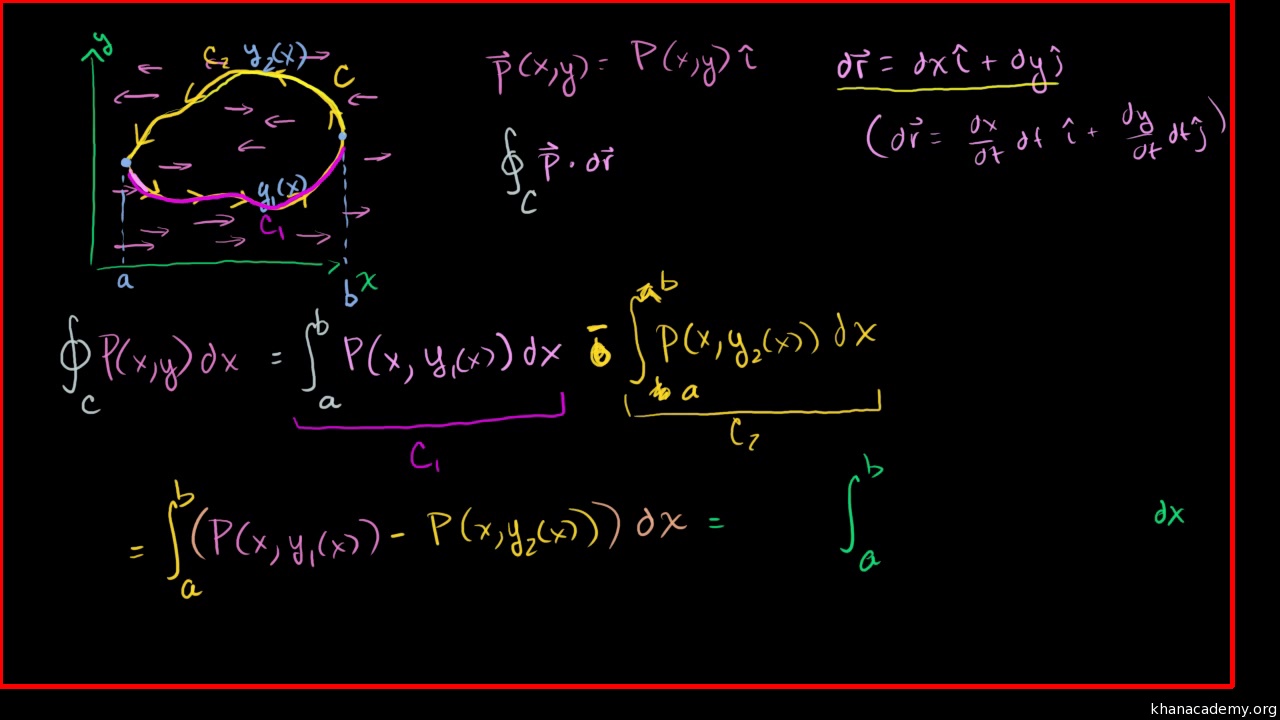 y
C₂ y₂(x) C
y₁(x)
C₁
a b x
p⃗(x,y) = P(x,y) î
dr⃗ = dx î + dy ĵ
(dr⃗ = dx/dt dt î + dy/dt dt ĵ)
∮_C p⃗ · dr⃗
∮_C P(x,y) dx = ∫_a^b P(x, y₁(x)) dx - ∫_a^b P(x, y₂(x)) dx
C₁ C₂
= ∫_a^b (P(x, y₁(x)) - P(x, y₂(x))) dx = ∫_a^b dx
khanacademy.org